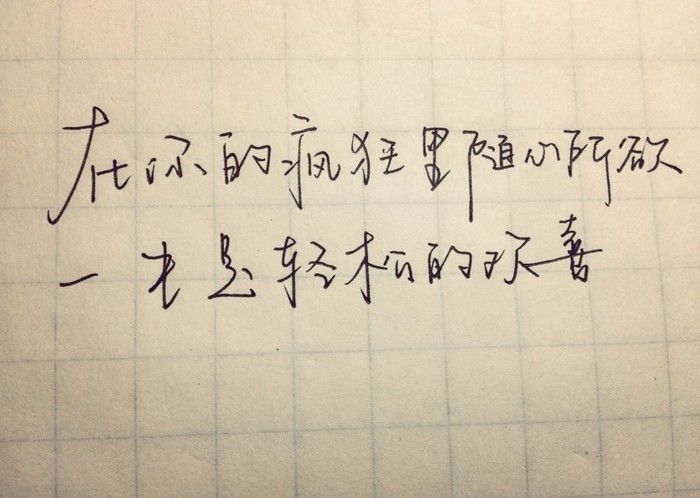 在你的疯狂里随心所欲
一书是轻松的欢喜